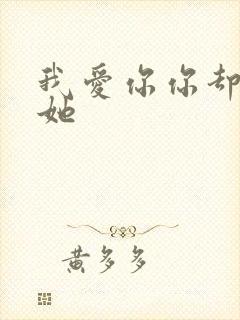 我爱你你却
她
黄多多